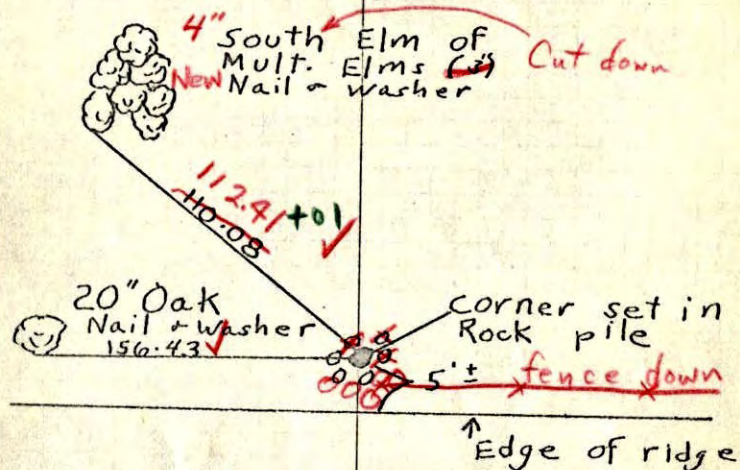 4" South Elm of
Mult. Elms (3")
New Nail & washer
Cut down
112.41 +01
110.08
20" Oak
Nail & washer
156.43
corner set in
Rock pile
5'±
fence down
Edge of ridge